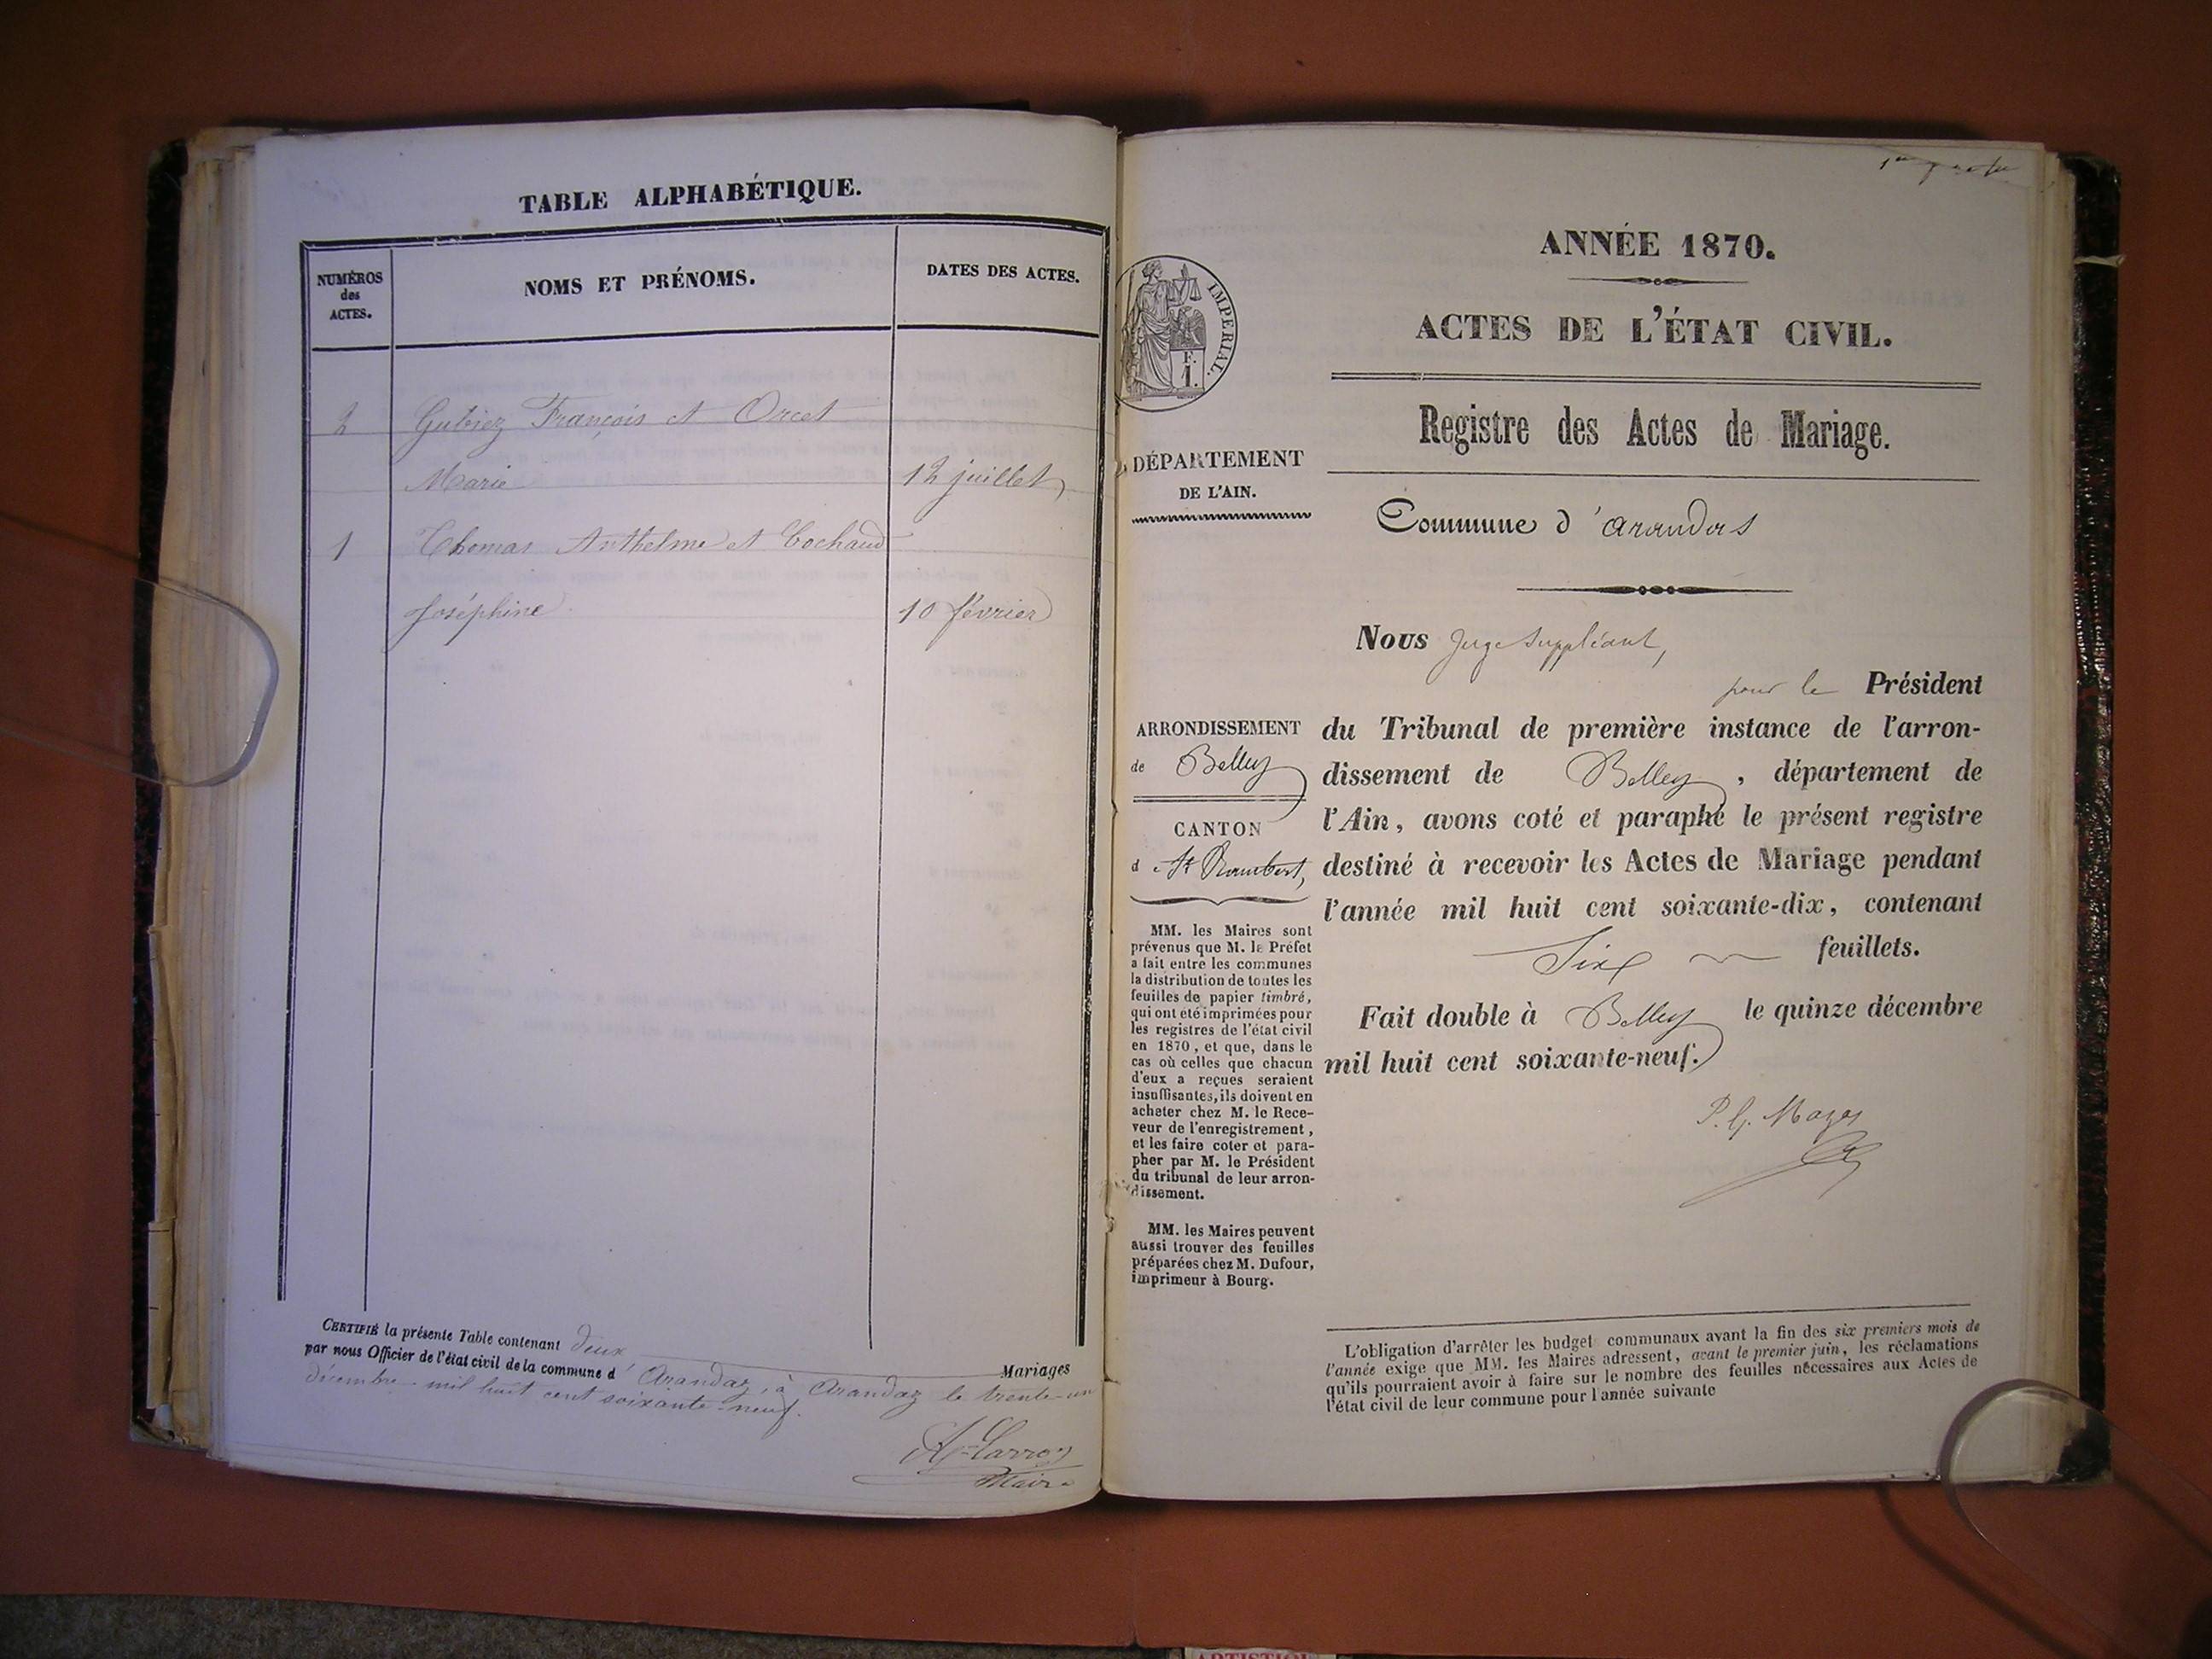 TABLE ALPHABÉTIQUE.
NUMÉROS
des
ACTES.
NOMS ET PRÉNOMS.
DATES DES ACTES.
2 Gubiez François et Orcet
Marie 12 juillet
1 Thomas Anthelme et Cochaud
Joséphine 10 février
CERTIFIÉ la présente Table contenant deux Mariages
par nous Officier de l'état civil de la commune d' Arandaz, à Arandaz le trente-un
décembre mil huit cent soixante-neuf.
Maire
ANNÉE 1870.
ACTES DE L'ÉTAT CIVIL.
IMPERIAL.
F.
1.
Registre des Actes de Mariage.
DÉPARTEMENT
DE L'AIN.
Commune d'Arandas
Nous Juge Suppléant,
pour le Président
ARRONDISSEMENT
de Belley
CANTON
de St Rambert,
du Tribunal de première instance de l'arron-
dissement de Belley, département de
l'Ain, avons coté et paraphé le présent registre
destiné à recevoir les Actes de Mariage pendant
l'année mil huit cent soixante-dix, contenant
Six feuillets.
Fait double à Belley le quinze décembre
mil huit cent soixante-neuf.
P. G. Mazas
MM. les Maires sont
prévenus que M. le Préfet
a fait entre les communes
la distribution de toutes les
feuilles de papier timbré,
qui ont été imprimées pour
les registres de l'état civil
en 1870, et que, dans le
cas où celles que chacun
d'eux a reçues seraient
insuffisantes, ils doivent en
acheter chez M. le Rece-
veur de l'enregistrement,
et les faire coter et para-
pher par M. le Président
du tribunal de leur arron-
dissement.
MM. les Maires peuvent
aussi trouver des feuilles
préparées chez M. Dufour,
imprimeur à Bourg.
L'obligation d'arrêter les budgets communaux avant la fin des six premiers mois de
l'année exige que MM. les Maires adressent, avant le premier juin, les réclamations
qu'ils pourraient avoir à faire sur le nombre des feuilles nécessaires aux Actes de
l'état civil de leur commune pour l'année suivante